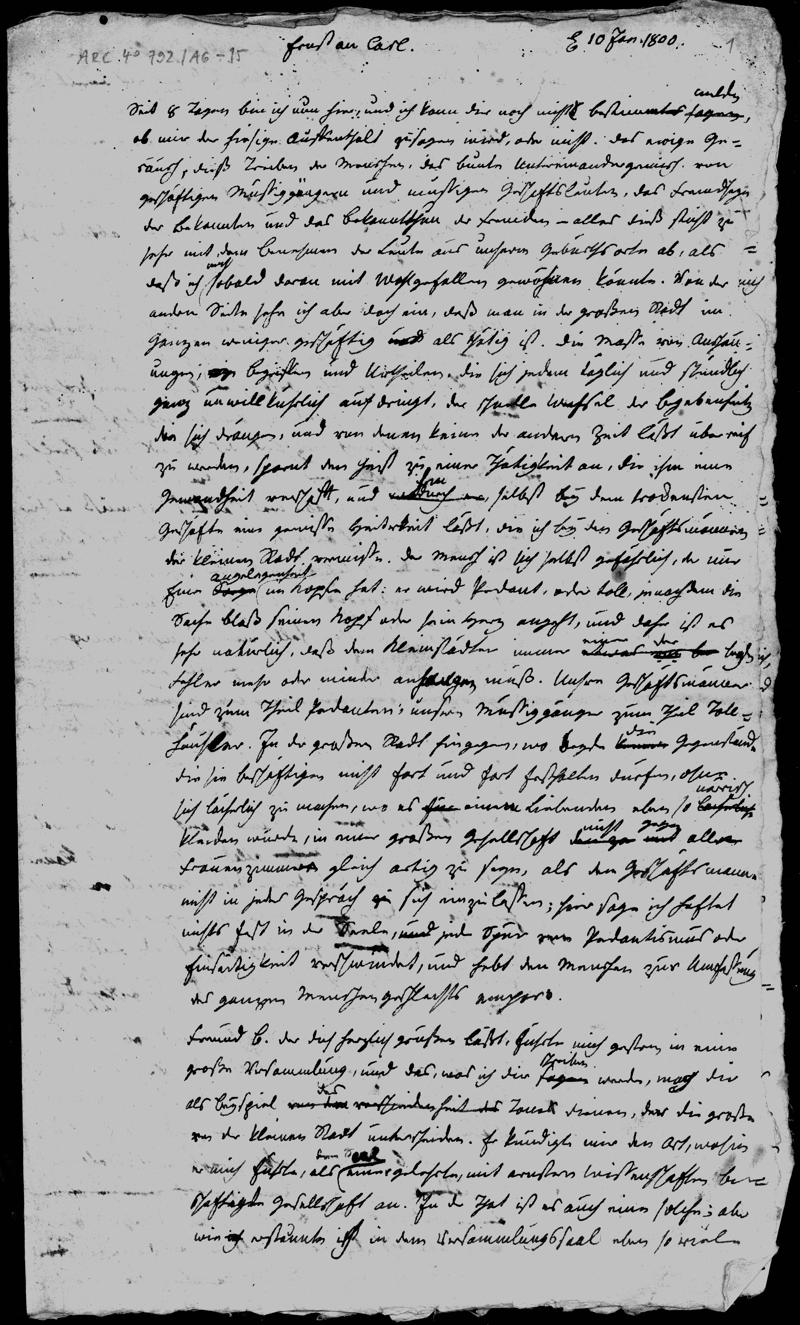 ARC. 4° 792./A6-15
Ernst an Carl. E 10 Jan. 1800. 1
melden
Seit 8 Tagen bin ich nun hier, und ich kann dir noch nichts bestimmtes sagen,
ob mir der hiesige Aufenthalt zusagen wird, oder nicht. Das ewige Ge=
räusch, dieß Treiben der Menschen, das bunte Untereinandergemisch von
geschäftigen Müssiggängern und müssigen Geschäftsleuten, das Fremdseyn
der Bekannten und das Bekanntthun der Fremden – alles dieß sticht zu
sehr mit dem Benehmen der Leute aus unserm Geburtsorte ab, als
mich
daß ich sobald daran mit Wohlgefallen gewöhnen könnte. Von der
andern Seite sehe ich aber doch ein, daß man in der großen Stadt im
Ganzen weniger geschäftig und als thätig ist. Die Masse von Anschau=
ungen, Begriffen und Urtheilen, die sich jedem täglich und stündlich
ganz unwillkührlich aufdringt, der schnelle Wechsel der Begebenheiten
die sich drängen, und von denen keine der andern Zeit läßt überreif
zu werden, spornt den Geist zu einer Thätigkeit an, die ihm eine
ihm
Gewandheit verschafft, und selbst bey dem trockensten
Geschäfte eine gewisse Heiterkeit läßt, die ich bey den Geschäftsmännern
der kleinen Stadt vermisse. Der Mensch ist sich selbst gefährlich, der nur
Angelegenheit
Eine Sorge im Kopfe hat: er wird Pedant, oder toll, jenachdem die
Sache bloß seinen Kopf oder sein Herz angeht, und daher ist es
einer der
sehr natürlich, daß dem Kleinstädter immer etwas von beyden
Fehler mehr oder minder anhangen muß. Unsre Geschäftsmänner
sind zum Theil Pedanten, unsere Müssiggänger zum Theil Toll=
den
häusler. In der großen Stadt hingegen, wo beyde Gegenstände
die sie beschäftigen nicht fort und fort festhalten dürfen, ohne
närrisch
sich lächerlich zu machen, wo es einem Liebenden eben so lächerlich
nicht gegen
kleiden würde, in einer großen Gesellschaft alle
Frauenzimmer gleich artig zu seyn, als dem Geschäftsmanne
nicht in jedes Gespräch sich einzulassen; hier sage ich haftet
nichts fest in der Seele, und jede Spur von Pedantismus oder
Einseitigkeit verschwindet, und hebt den Menschen zur Umfassung
des ganzen Menschengeschlechts empor.
Freund B. der dich herzlich grüßen läßt, führte mich gestern in eine
schreiben
große Versammlung, und das, was ich dir sagen werde, mag dir
des
als Beyspiel von der Verschiedenheit des Tones dienen, der die große
von der kleinen Stadt unterscheiden. Er kündigte mir den Ort, wohin
er mich führte, als einer gelehrten, mit ernsten Wissenschaften be=
schäftigten Gesellschaft an. In der That ist es auch eine solche; aber
wie erstaunte ich in dem Versammlungssaal eben so viele